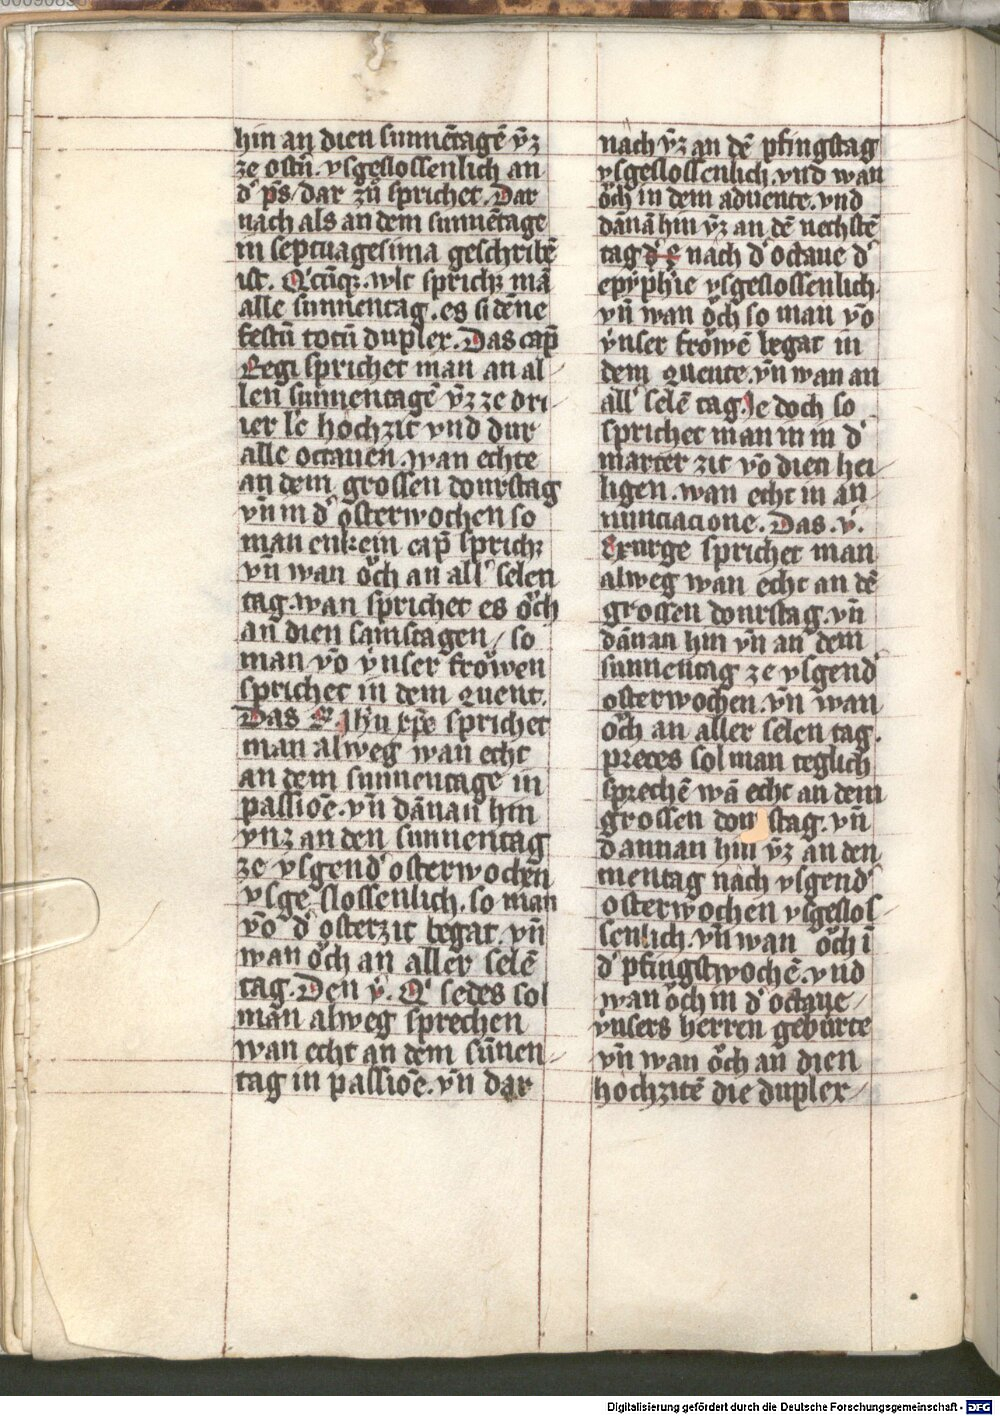 hin an dien sunnētagē v̄z
ze ostn̄. vsgeslossenlich an
d' ps̄ / dar zů sprichet. Dar
nach als an dem sunnētage
in septuagesima geschribē
ist. Q'cūqz. wlt sprichz mā
alle sunnentag. es si dēne
festū totū duplex. Das cap̄
Regi sprichet man an al
len sunnentagē vn̄z ze dri
ier lē hochzit vnd dur
alle octauen. wan echte
an dem grossen donrstag
vn̄ in d' osterwochen so
man enkein cap̄ sprichz
vn̄ wan ǒch an all' selen
tag. wan sprichet es ǒch
an dien samstagen / so
man vō vnser frǒwen
sprichet in dem quent.
Das R ihū xpē sprichet
man alweg wan echt
an dem sunnentage in
passiōe. vn̄ dānan hin
vnz an den sunnentag
ze vsgend' osterwochen
vsgeslossenlich. so man
vō d' osterzit begat. vn̄
wan ǒch an aller selē
tag. Den v̄. Q' sedes sol
man alweg sprechen
wan echt an dem sūnen
tag in passiōe. vn̄ dar
nach vn̄z an dē pfingstag
vsgeslossenlich. vnd wan
ǒch in dem aduente. vnd
dānā hin vn̄z an dē nechstē
tag nach d' octaue d'
epyphie vsgeslossenlich
vn̄ wan ǒch so man vō
vnser frǒwē begat in
dem quente. vn̄ wan an
all' selē tag. Je doch so
sprichet man in in d'
marter zit vō dien hei
ligen. wan echt in an
nunciacione. Das. v̄.
Exurge sprichet man
alweg wan echt an dē
grossen donrstag. vn̄
dānan hin vn̄ an dem
sunnentag ze vsgend'
osterwochen. vn̄ wan
ǒch an aller selen tag.
preces sol man teglich
sprechē wā echt an dem
grossen donrstag. vn̄
dannan hin vn̄z an den
mentag nach vsgend'
osterwochen vsgeslos
senlich. vn̄ wan ǒch ī
d' pfingstwochē. vnd
wan ǒch in d' octaue
vnsers herren gebürte
vn̄ wan ǒch an dien
hochzitē die duplex
Digitalisierung gefördert durch die Deutsche Forschungsgemeinschaft - DFG